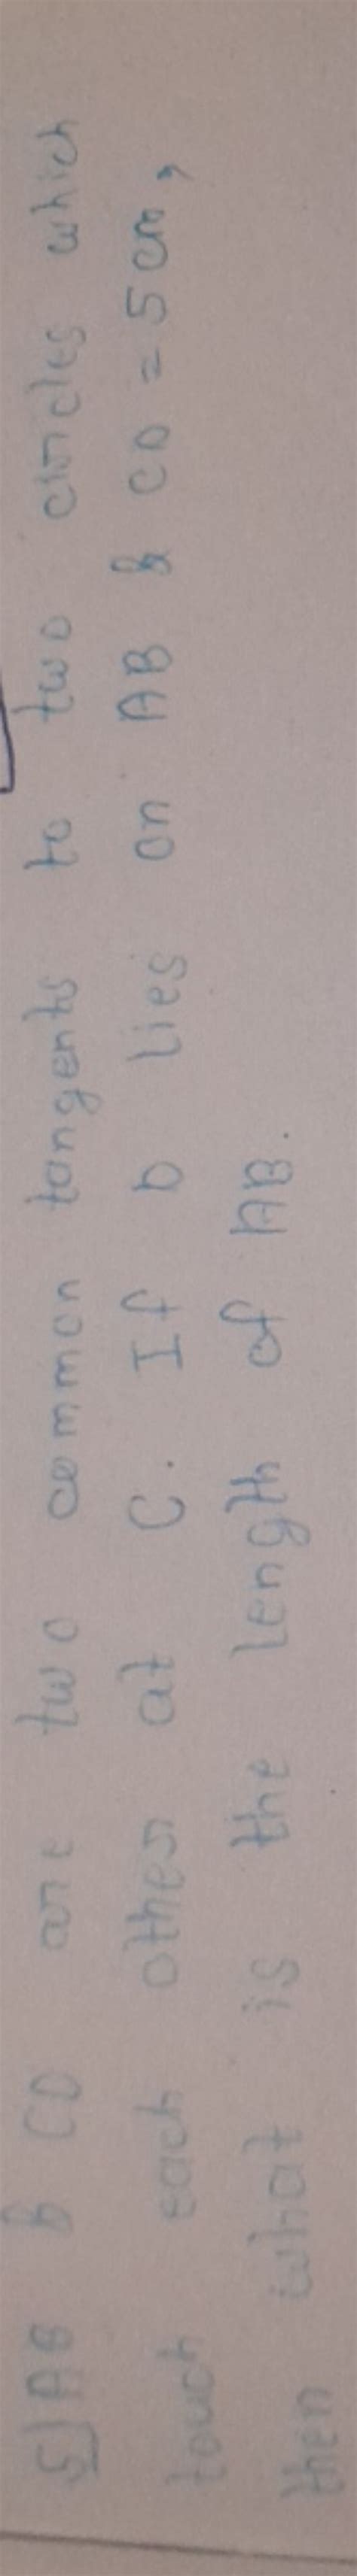 5] AB & CD are two common tangents to two circles which
touch each other at C. If D lies on AB & CD = 5cm,
then what is the length of AB.